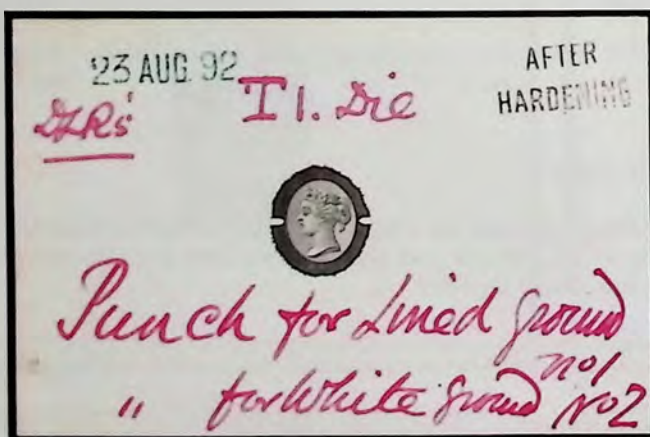 23 AUG. 92
AFTER
HARDENING
DLRs'
T1. Die
Punch for Lined ground
no1
" for White ground No2